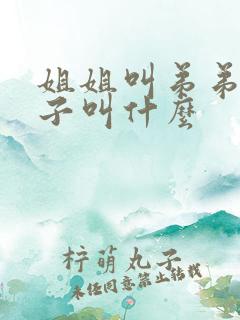 姐姐叫弟弟
子叫什麼
梓萌丸子
未经同意禁止转载